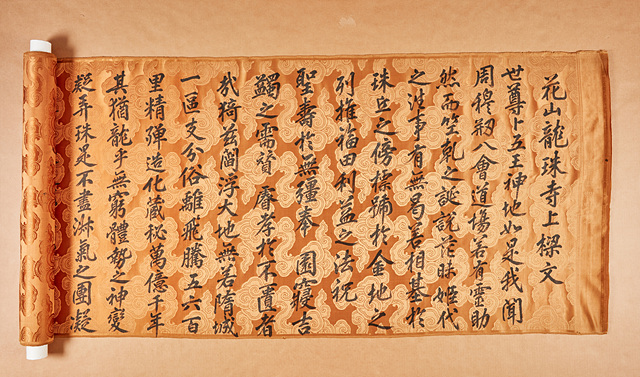 花山龍珠寺上樑文
世尊上五王神地如是我聞
周穆刱八會道場若有靈助
然而竺乾之誕說茫昧姬代
之往事有無曷若相基於
珠丘之傍標號於金地之
列推福田利益之法祝
聖壽於無疆奉 園寢吉
蠲之需贊 睿孝於不匱者
哉猗玆閻浮大地無若隋城
一區支分俗離飛騰五六百
里精彈造化藏秘萬億千年
其猶龍乎無窮體勢之神變
疑弄珠是不盡淋氣之團凝